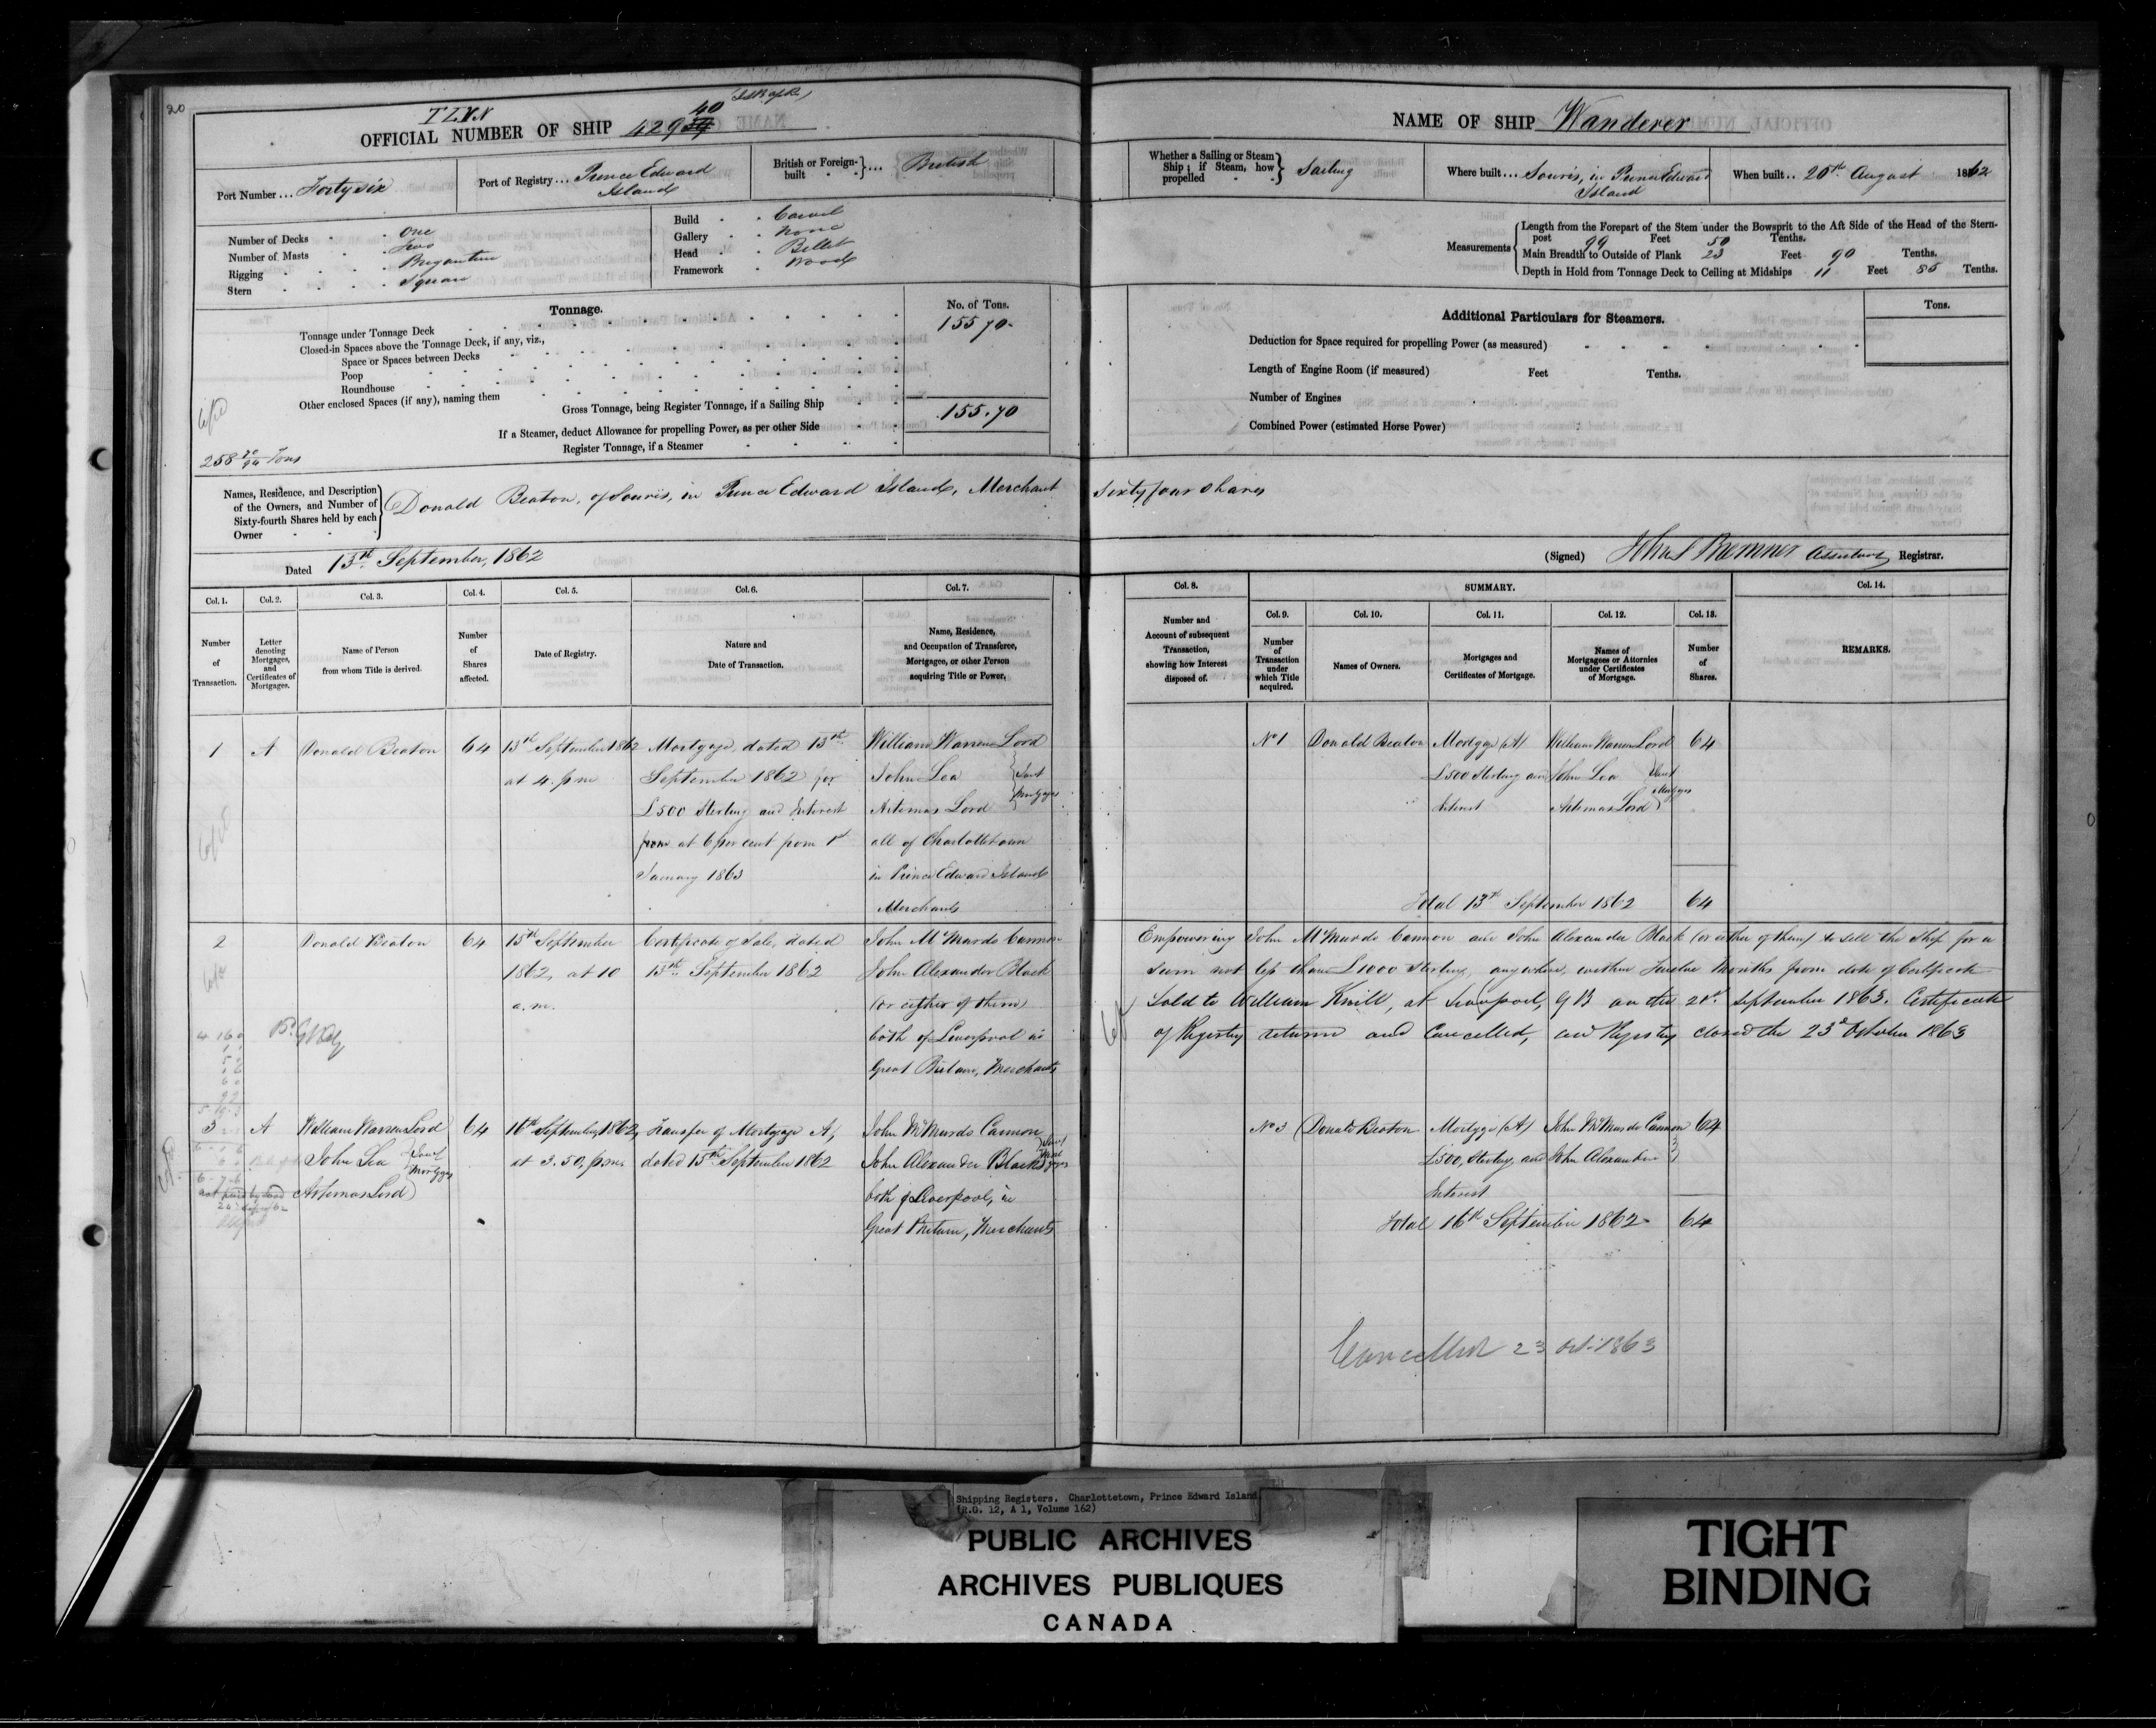 20
T L V N
40
OFFICIAL NUMBER OF SHIP 429
Port Number ... Forty six
Port of Registry ... Prince Edward
Island
British or Foreign-
built ... British
Number of Decks One
Number of Masts Two
Rigging Brigantine
Stern Square
Build Carvel
Gallery None
Head Billet
Framework Wood
Tonnage.
No. of Tons.
Tonnage under Tonnage Deck 155 70
Closed-in Spaces above the Tonnage Deck, if any, viz.,
Space or Spaces between Decks
Poop
Roundhouse
Other enclosed Spaces (if any), naming them
Gross Tonnage, being Register Tonnage, if a Sailing Ship 155.70
If a Steamer, deduct Allowance for propelling Power, as per other Side
Register Tonnage, if a Steamer
258 Tons
NAME OF SHIP Wanderer
Whether a Sailing or Steam
Ship; if Steam, how
propelled
Sailing
Where built ... Souris, in Prince Edward
Island
When built .. August 1862
Measurements
Length from the Forepart of the Stem under the Bowsprit to the Aft Side of the Head of the Stern-
post 99 Feet 50 Tenths.
Main Breadth to Outside of Plank 23 Feet 90 Tenths.
Depth in Hold from Tonnage Deck to Ceiling at Midships 11 Feet Tenths.
Additional Particulars for Steamers.
Tons.
Deduction for Space required for propelling Power (as measured)
Length of Engine Room (if measured) Feet Tenths.
Number of Engines
Combined Power (estimated Horse Power)
Names, Residence, and Description
of the Owners, and Number of
Sixty-fourth Shares held by each
Owner
Donald Beaton, of Souris, in Prince Edward Island, Merchant Sixty four Shares
Dated 13th September, 1862
(Signed) Assistant Registrar.
Col. 1.
Number
of
Transaction.
Col. 2.
Letter
denoting
Mortgages,
and
Certificates of
Mortgage.
Col. 3.
Name of Person
from whom Title is derived.
Col. 4.
Number
of
Shares
affected.
Col. 5.
Date of Registry.
Col. 6.
Nature and
Date of Transaction.
Col. 7.
Name, Residence,
and Occupation of Transferee,
Mortgagee, or other Person
acquiring Title or Power.
Col. 8.
Number and
Account of subsequent
Transaction,
showing how Interest
disposed of.
SUMMARY.
Col. 9.
Number
of
Transaction
under
which Title
acquired.
Col. 10.
Names of Owners.
Col. 11.
Mortgages and
Certificates of Mortgage.
Col. 12.
Names of
Mortgagees or Attornies
under Certificates
of Mortgage.
Col. 13.
Number
of
Shares.
Col. 14.
REMARKS.
1 A Donald Beaton 64
13th September 1862
at 4. pm
Mortgage, dated 13th
September 1862 for
£500 Sterling and Interest
from at 6 per cent from 1st
January 1863
William Warren Lord
John Lea
Artemas Lord
Joint
Mortgagees
all of Charlottetown
in Prince Edward Island
Merchants
No 1 Donald Beaton
Mortgage (A)
£500 Sterling and
Interest
William Warren Lord
John Lea
Artemas Lord
Joint
64
Total 13th September 1862 64
2 Donald Beaton 64
15th September
1862, at 10
a.m.
Certificate of Sale, dated
13th September 1862
John McMurdo Cannon
John Alexander Black
(or either of them)
both of Liverpool in
Great Britain, Merchants
Empowering John McMurdo Cannon and John Alexander Black (or either of them) to sell the Ship for a
sum not less than £1000 Sterling, anywhere, within Twelve Months from date of Certificate
Sold to William Knill, at Liverpool, GB on the September 1863. Certificate
of Registry returned and Cancelled, and Registry closed the 23d October 1863
3 A
William Warren Lord
John Lea
Artemas Lord
Joint
Mortgagees
64
16th September 1862,
at 3.50, p.m.
Transfer of Mortgage A,
dated 15th September 1862
John McMurdo Cannon
John Alexander Black
both of Liverpool, in
Great Britain, Merchants
No 3 Donald Beaton
Mortgage (A)
£500, Sterling, and
Interest
John McMurdo Cannon
John Alexander
64
Total 16th September 1862 64
Cancelled 23 Oct. 1863
Shipping Registers. Charlottetown, Prince Edward Island
(R.G. 12, A 1, Volume 162)
PUBLIC ARCHIVES
ARCHIVES PUBLIQUES
CANADA
TIGHT
BINDING